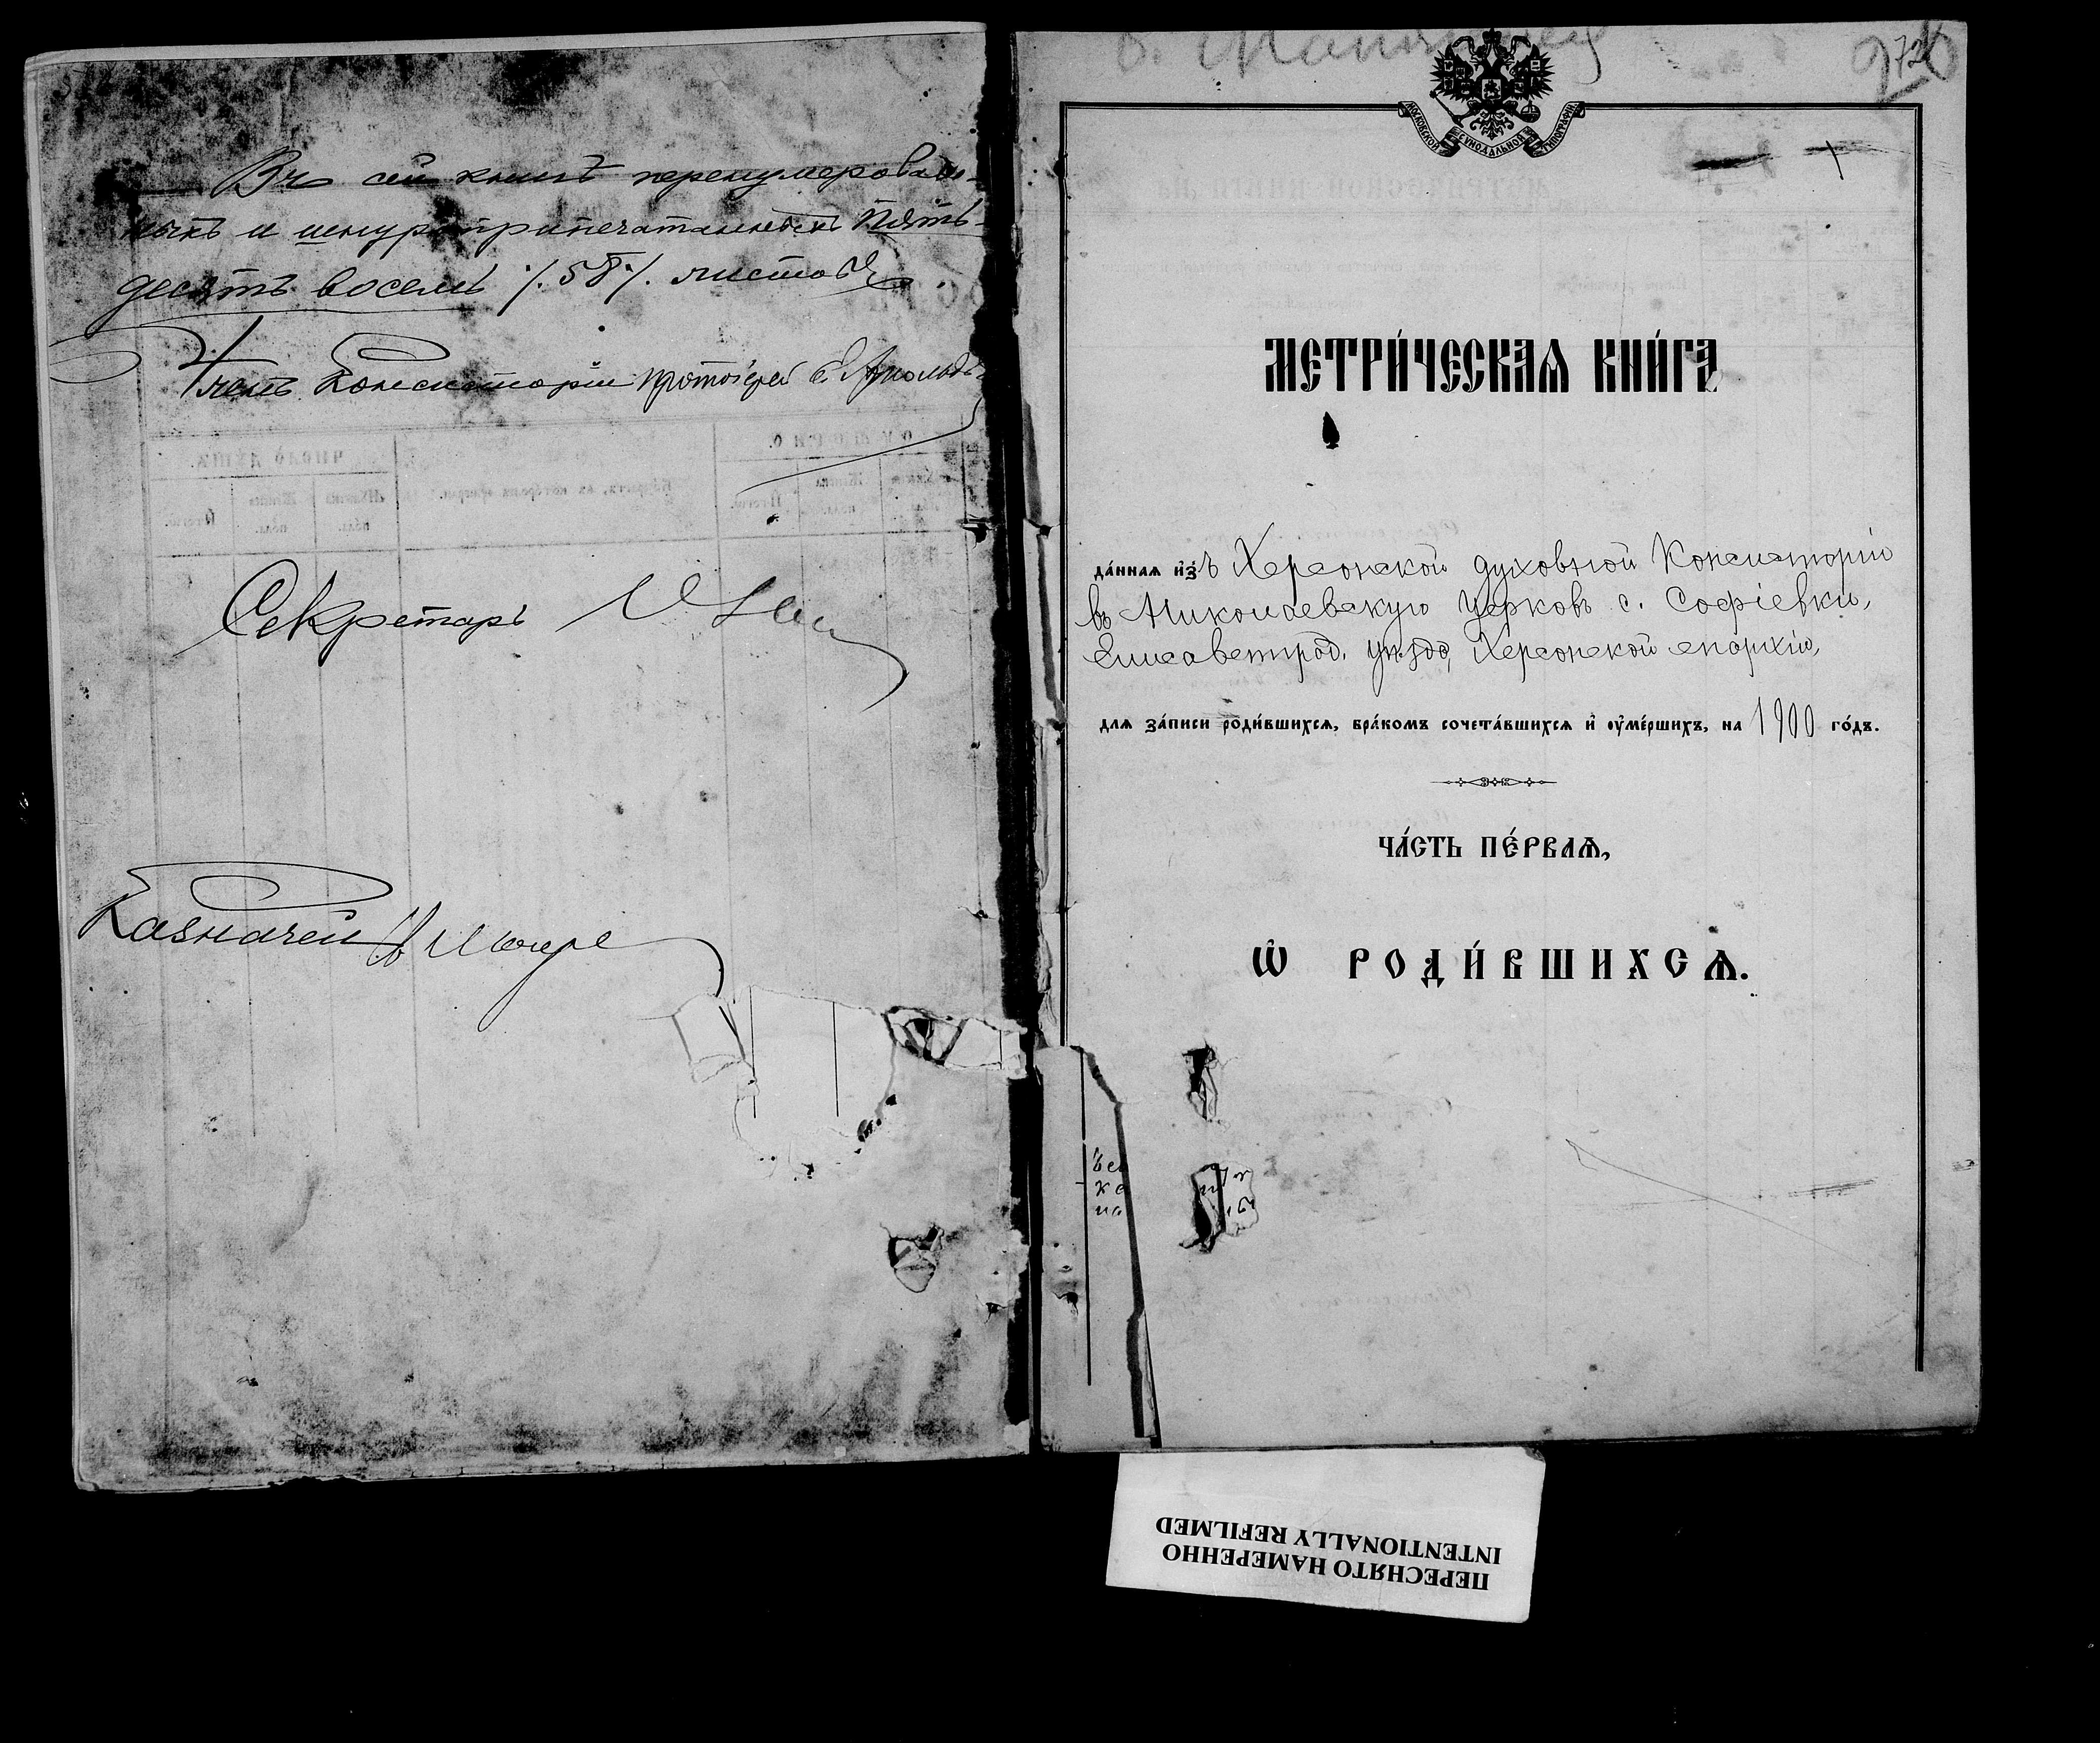 Въ сей книгѣ перенумерован-
ныхъ и шнуроприпечатанныхъ пять-
десятъ восемь /.58./ листовъ.
Членъ Консисторіи протоіерей
Секретарь
Казначей
МОСКОВСКОЙ СѴНОДАЛЬНОЙ ТИПОГРАФІИ
МЕТРИ́ЧЕСКАѦ КНИ́ГА
да́ннаѧ и҆з̾ъ Херсонской духовной Консисторіи
въ Николаевскую церковь с. Софіевки,
Елисаветград. уѣзда, Херсонской епархіи,
длѧ за́писи роди́вшихсѧ, бра́комъ сочета́вшихсѧ и҆ ᲂу҆ме́ршихъ, на 1900 го́дъ.
ЧА́СТЬ ПЕ́РВАѦ,
Ѽ РОДИ́ВШИХСѦ.
ПЕРЕСНЯТО НАМЕРЕННО
INTENTIONALLY REFILMED